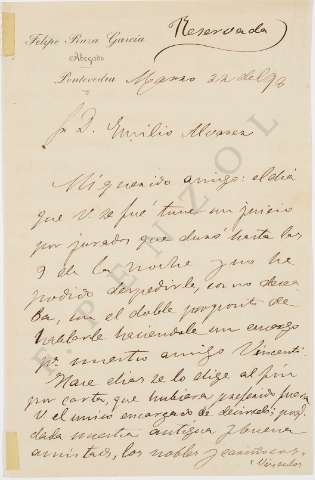 Reservada
Felipe Ruza García
Abogado
Pontevedra
Marzo 22 del 98
Sr D. Emilio Alvarez
Mi querido amigo: el dia
que V. se fué tuve un juicio
por jurados que duró hasta las
9 de la noche y no he
podido despedirle, como desea-
ba, con el doble proposito de
hablarle haciendole un encargo
pª nuestro amigo Vincenti.
Hace dias se lo dige al fin
por carta, que hubiera preferido fuera
V el unico encargado de decirselo; pues
dada nuestra antigua y buena
amistad, los nobles y cariñosos
vinculos
PENZOL